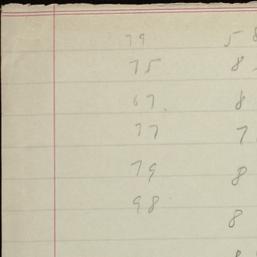 79 58
75 8
67. 8
77 7
79 8
98 8
8